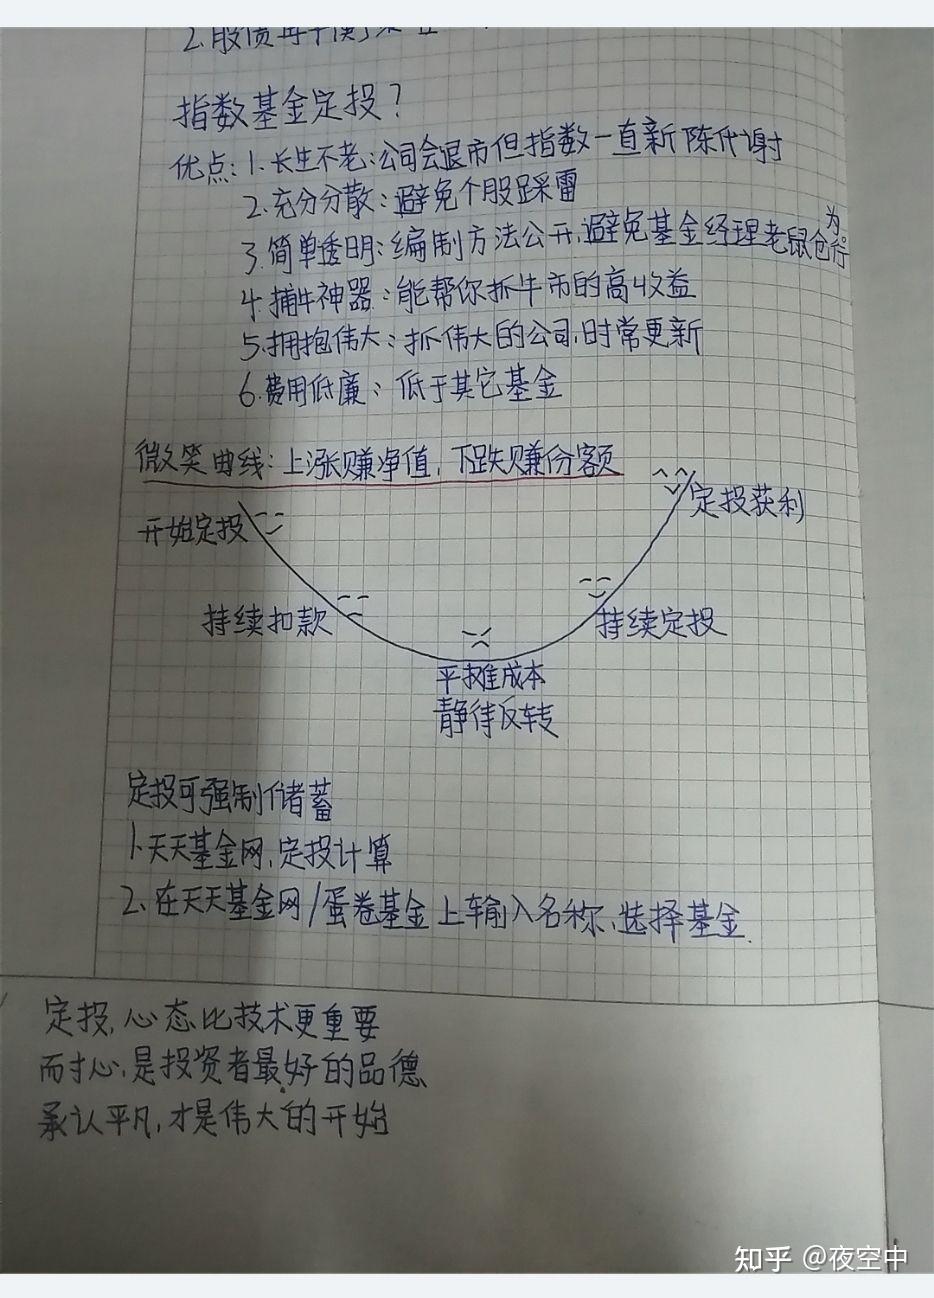 2.股债再平衡
指数基金定投？
优点：1.长生不老：公司会退市但指数一直新陈代谢
2.充分分散：避免个股踩雷
3.简单透明：编制方法公开,避免基金经理老鼠仓行为
4.捕牛神器：能帮你抓牛市的高收益
5.拥抱伟大：抓伟大的公司,时常更新
6.费用低廉：低于其它基金
微笑曲线：上涨赚净值,下跌赚份额
开始定投
定投获利
持续扣款
持续定投
平摊成本
静待反转
定投可强制储蓄
1.天天基金网,定投计算
2.在天天基金网/蛋卷基金上输入名称,选择基金.
定投,心态比技术更重要
而耐心,是投资者最好的品德
承认平凡,才是伟大的开始
知乎 @夜空中